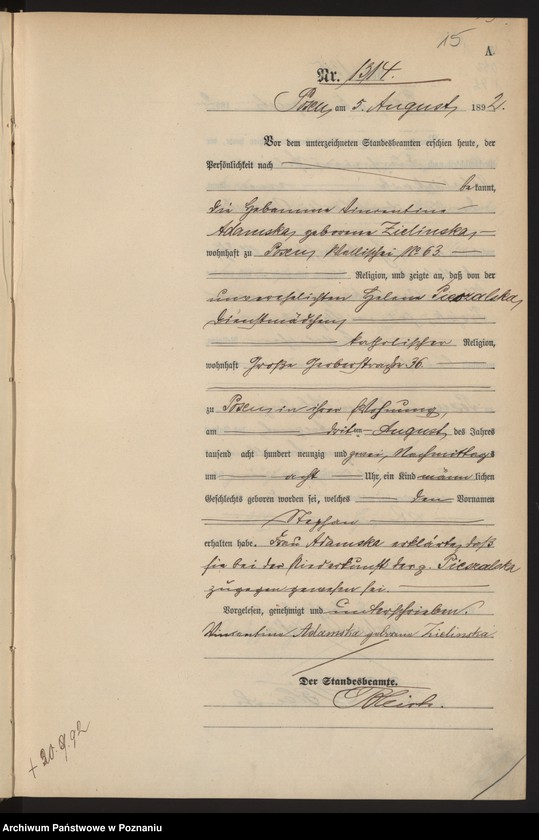 15
A.
Nr. 1314.
Posen, am 5. August, 1892.
Vor dem unterzeichneten Standesbeamten erschien heute, der
Persönlichkeit nach
bekannt,
die Hebamme Vincentine
Adamska, geborene Zielinska,
wohnhaft zu Posen, Wallischei No 63.
Religion, und zeigte an, daß von der
unverehelichten Helene
Dienstmädchen,
katholischer Religion,
wohnhaft Große Gerberstraße 36.
zu Posen, in ihrer Wohnung,
am dritten August, des Jahres
tausend acht hundert neunzig und zwei, Nachmittags
um acht Uhr, ein Kind männlichen
Geschlechts geboren worden sei, welches den Vornamen
Stephan
erhalten habe. Frau Adamska erklärte, daß
sie bei der Niederkunft der
zugegen gewesen sei.
Vorgelesen, genehmigt und unterschrieben.
Vincentine Adamska geborene Zielinska
Der Standesbeamte.
Archiwum Państwowe w Poznaniu